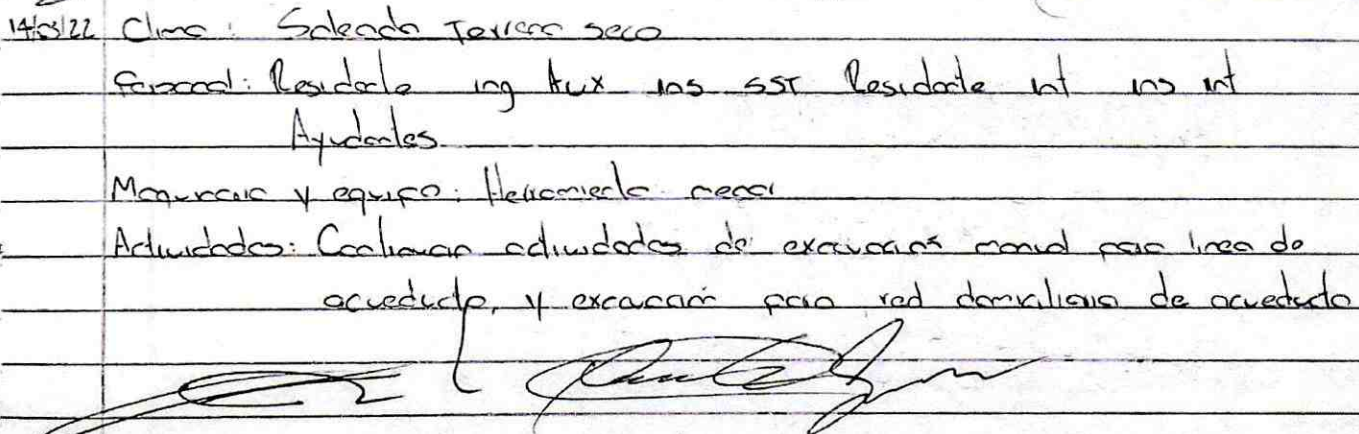 14/03/22 Clima: Soleado Terreno seco
Personal: Residente ing Aux ins SST Residente int ins int
Ayudantes
Maquinaria y equipo: Herramienta menor
Actividades: Continuan actividades de excavacion manual para linea de
acueducto, y excavación para red domiciliaria de acueducto